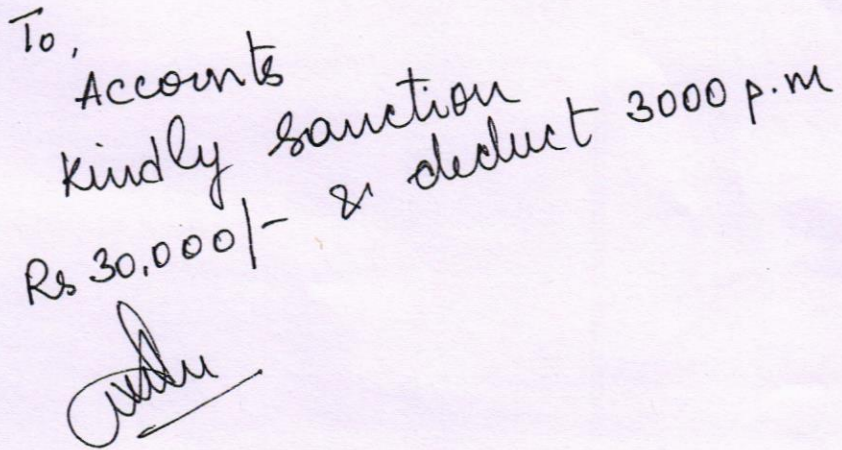 To,
Accounts
Kindly sanction
Rs 30,000/- & deduct 3000 p.m